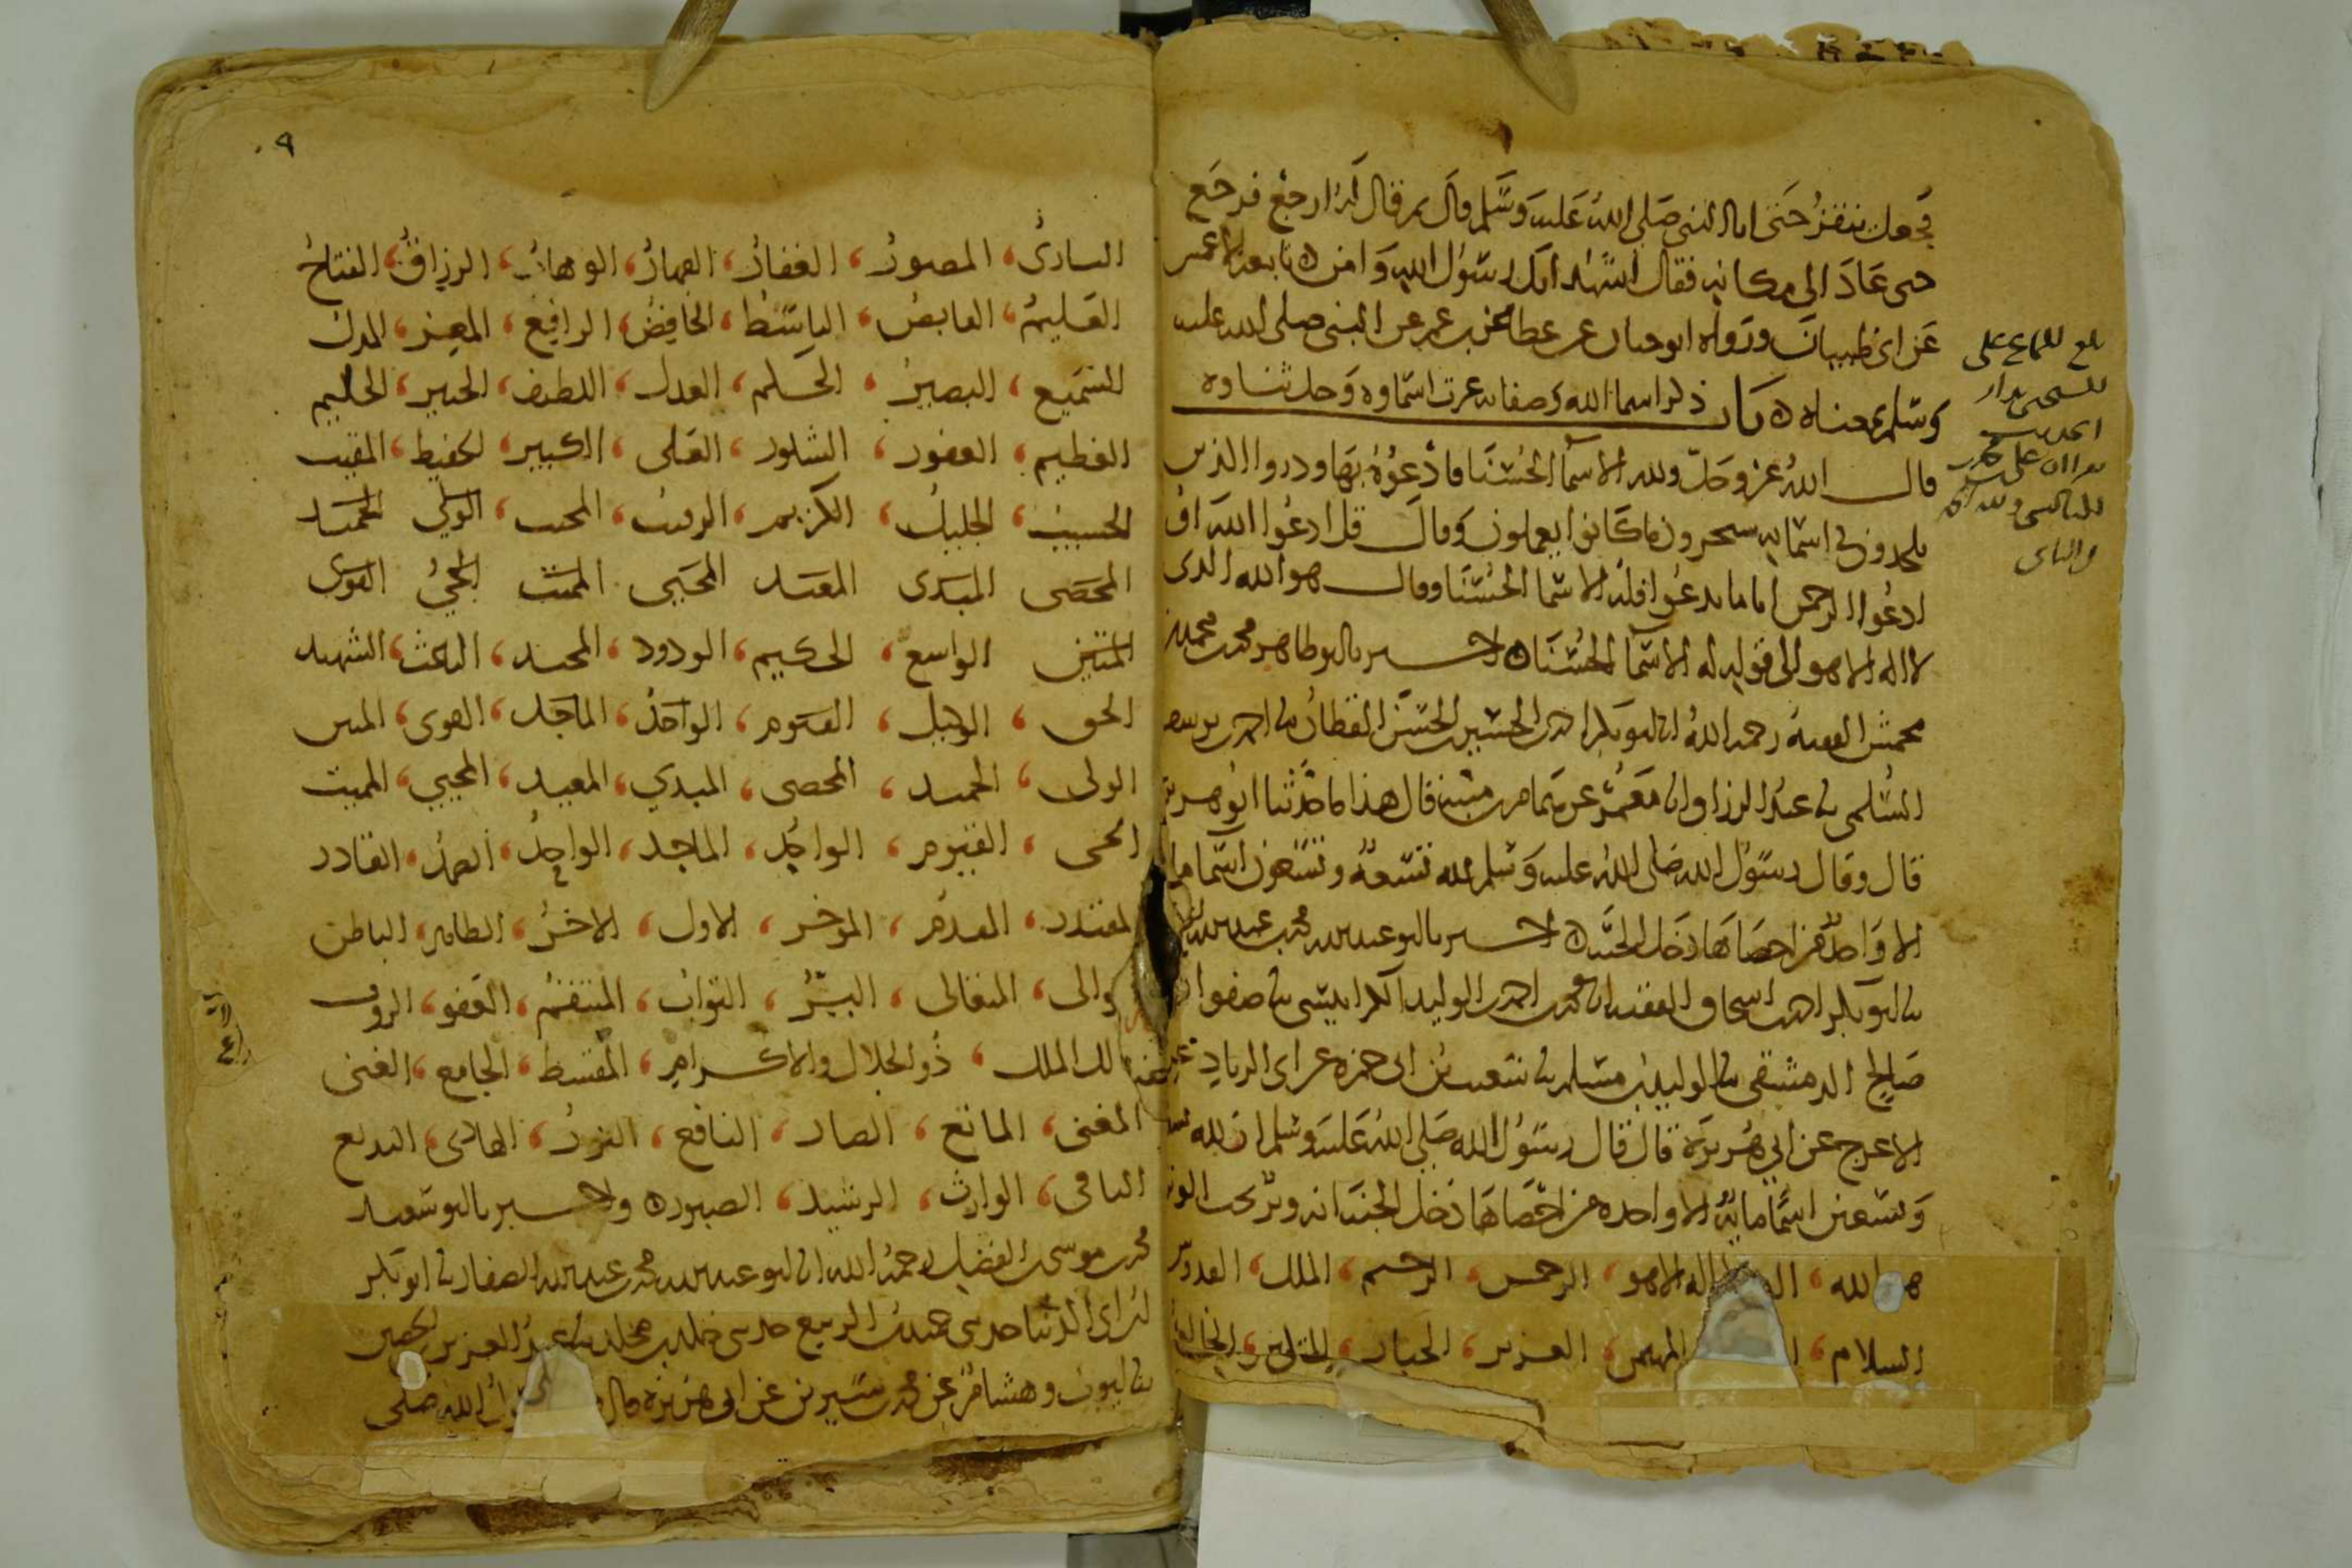 فجعل ينقز حتى اتا النبي صلى الله عليه وسلم قال ثم قال له ارجع فرجع
حتى عاد الى مكانه فقال اشهد انك رسول الله وامن ه تابعه الاعمش
عن ابي ظبيان ورواه ابو حيان عن عطا عن ابن عمر عن النبي صلى الله عليه
وسلم بمعناه ه باب ذكر اسما الله وصفاته عزت اسماوه وجل ثناوه
قال الله عز وجل ولله الاسما الحسنا فادعوه بها وذروا الذين
يلحدون في اسمايه سيجزون ما كانوا يعملون وقال قل ادعوا الله او
ادعوا الرحمن اياما تدعوا فله الاسما الحسنا وقال هو الله الذي
لا اله الا هو الى قوله له الاسما الحسنا ه اخبرنا ابو طاهر محمد بن محمد بن
محمش الفقيه رحمه الله انا ابو بكر محمد بن الحسين بن الحسن القطان نا احمد بن يوسف
السلمي نا عبد الرزاق انا معمر عن همام بن منبه قال هذا ما حدثنا ابو هريرة
قال وقال رسول الله صلى الله عليه وسلم لله تسعة وتسعون اسما ماية
الا واحدا من احصاها دخل الجنة ه اخبرنا ابو عبد الله محمد بن عبد الله
نا ابو بكر احمد بن اسحاق الفقيه انا محمد بن احمد بن الوليد الكرابيسي نا صفوان بن
صالح الدمشقي نا الوليد بن مسلم نا شعيب بن ابي حمزة عن ابي الزناد عن
الاعرج عن ابي هريرة قال قال رسول الله صلى الله عليه وسلم ان لله تسعة
وتسعين اسما ماية الا واحدة من احصاها دخل الجنة انه وتر يحب الوتر
هو الله الذي لا اله الا هو الرحمن الرحيم الملك القدوس
السلام المهيمن العزيز الجبار المتكبر الخالق
بلغ السماع على
والناس
٩
البارئ المصور الغفار القهار الوهاب الرزاق الفتاح
العليم القابض الباسط الخافض الرافع المعز المذل
السميع البصير الحكم العدل اللطيف الخبير الحليم
العظيم الغفور الشكور العلي الكبير الحفيظ المقيت
الحسيب الجليل الكريم الرقيب المجيب الولي الحميد
المحصي المبدي المعيد المحيي المميت الحي القوي
المتين الواسع الحكيم الودود المجيد الباعث الشهيد
الحق الوكيل القيوم الواجد الماجد القوي المتين
الولي الحميد المحصي المبدي المعيد المحيي المميت
الحي القيوم الواجد الماجد الواحد الصمد القادر
المقتدر المقدم الموخر الاول الاخر الظاهر الباطن
الوالي المتعالي البر التواب المنتقم العفو الروف
مالك الملك ذو الجلال والاكرام المقسط الجامع الغني
المغني المانع الضار النافع النور الهادي البديع
الباقي الوارث الرشيد الصبور ه واخبرنا ابو سعيد
محمد بن موسى بن الفضل رحمه الله انا ابو عبد الله محمد بن عبد الله الصفار نا ابو بكر
ابن ابي الدنيا حدثني حميد بن الربيع حدثني خالد بن مخلد نا عبد العزيز بن حصين
نا ايوب وهشام عن محمد بن سيرين عن ابي هريرة قال رسول الله صلى